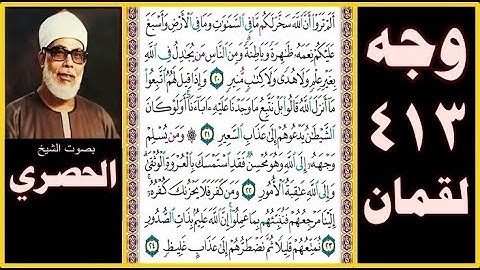 وجه
٤١٣
لقمان
أَلَمْ تَرَوْا۟ أَنَّ ٱللَّهَ سَخَّرَ لَكُم مَّا فِى ٱلسَّمَٰوَٰتِ وَمَا فِى ٱلْأَرْضِ وَأَسْبَغَ
عَلَيْكُمْ نِعَمَهُۥ ظَٰهِرَةً وَبَاطِنَةً وَمِنَ ٱلنَّاسِ مَن يُجَٰدِلُ فِى ٱللَّهِ
بِغَيْرِ عِلْمٍ وَلَا هُدًى وَلَا كِتَٰبٍ مُّنِيرٍ ٢٠ وَإِذَا قِيلَ لَهُمُ ٱتَّبِعُوا۟
مَآ أَنزَلَ ٱللَّهُ قَالُوا۟ بَلْ نَتَّبِعُ مَا وَجَدْنَا عَلَيْهِ ءَابَآءَنَآ أَوَلَوْ كَانَ
ٱلشَّيْطَٰنُ يَدْعُوهُمْ إِلَىٰ عَذَابِ ٱلسَّعِيرِ ٢١ ۞ وَمَن يُسْلِمْ
وَجْهَهُۥٓ إِلَى ٱللَّهِ وَهُوَ مُحْسِنٌ فَقَدِ ٱسْتَمْسَكَ بِٱلْعُرْوَةِ ٱلْوُثْقَىٰ
وَإِلَى ٱللَّهِ عَٰقِبَةُ ٱلْأُمُورِ ٢٢ وَمَن كَفَرَ فَلَا يَحْزُنكَ كُفْرُهُۥٓ
إِلَيْنَا مَرْجِعُهُمْ فَنُنَبِّئُهُم بِمَا عَمِلُوٓا۟ إِنَّ ٱللَّهَ عَلِيمٌۢ بِذَاتِ ٱلصُّدُورِ
٢٣ نُمَتِّعُهُمْ قَلِيلًا ثُمَّ نَضْطَرُّهُمْ إِلَىٰ عَذَابٍ غَلِيظٍ ٢٤
بصوت الشيخ
الحصري